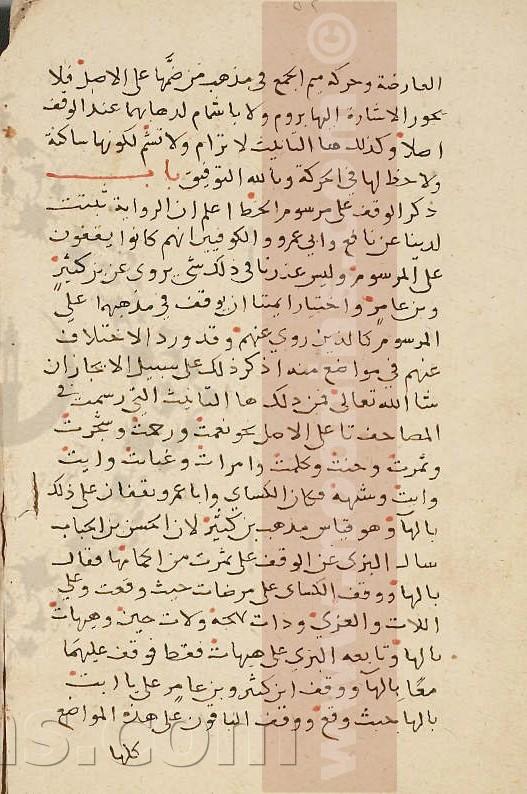 العارضة وحركة ميم الجمع في مذهب من ضمها على الاصل فلا
يجوز الاشارة اليها بروم ولا باشمام لذهابهما عند الوقف
اصلا وكذلك هاء التانيث لا ترام ولا تشم لكونها ساكنة
ولا حظ لها في الحركة وبالله التوفيق باب
ذكر الوقف على مرسوم الخط اعلم ان الرواية ثبتت
لدينا عن نافع وابي عمرو والكوفيين انهم كانوا يقفون
على المرسوم وليس عندنا في ذلك شي يروى عن بن كثير
وبن عامر واختار ايمتنا ان يوقف في مذهبهما على
المرسوم كالذين روي عنهم وقد ورد الاختلاف
عنهم في مواضع منه اذكر ذلك على سبيل الايجاز ان
شا الله تعالى فمن ذلك هاء التانيث التي رسمت في
المصاحف تا على الاصل نحو نعمت ورحمت وشجرت
وثمرت وجنت وكلمت وامرات وغيابت وايت
وابت وشبهه فكان الكساي وابا عمرو يقفان على ذلك
بالها وهو قياس مذهب بن كثير لان الحسن بن الحباب
سال البزي عن الوقف على ثمرت من اكمامها فقال
بالها ووقف الكساى على مرضات حيث وقعت وعلى
اللات والعزي وذات بهجة ولات حين وهيهات
بالها وتابعه البزي على هيهات فقط فوقف عليهما
معا بالها ووقف ابن كثير وبن عامر على يا ابت
بالها حيث وقع ووقف الباقون على هذه المواضع
كلها